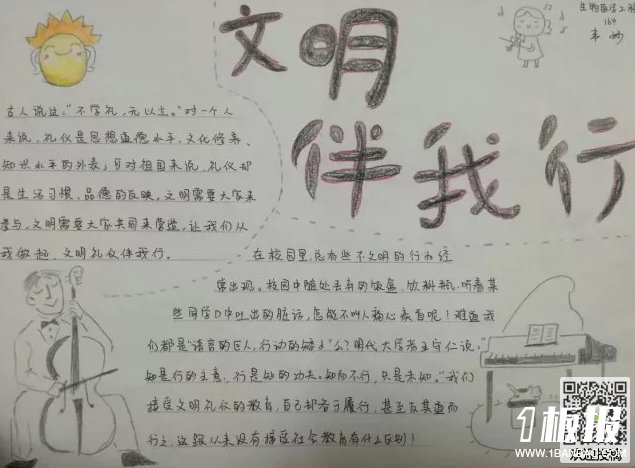 文明
伴我行
生物医学工程
164
古人说过:"不学礼,无以立。"对一个人
来说,礼仪是思想道德水平、文化修养、
知识水平的外表;可对祖国来说,礼仪却
是生活习惯、品德的反映,文明需要大家来
参与,文明需要大家共同来营造,让我们从
我做起,文明礼仪伴我行。
在校园里,总有些不文明的行为经
常出现。校园中随处丢弃的饭盒、饮料瓶,听着某
些同学口中吐出的脏话,怎能不叫人痛心疾首呢!难道我
们都是"语言的巨人,行动的矮子"么?明代大学者王守仁说:"
知是行的主意,行是知的功夫。知而不行,只是未知。"我们
接受文明礼仪的教育,自己却吝于履行,甚至反其道而
行之,这跟从来没有接受社会教育有什么区别!
1板报
WWW.1BANBAO.COM
欢迎投稿